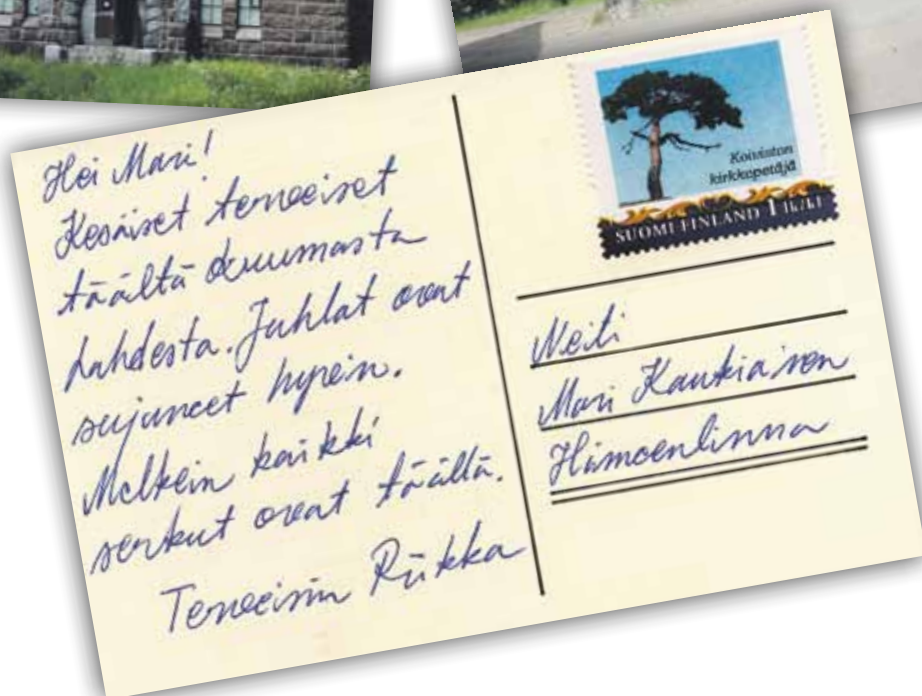 Hei Mari!
Kesäiset terveiset
täältä kuumasta
Lahdesta. Juhlat ovat
sujuneet hyvin.
Melkein kaikki
serkut ovat täällä.
Terveisin Riikka
Koiviston
kirkkopetäjä
SUOMI FINLAND 1 lk/kl
Neiti
Mari Kaukiainen
Hämeenlinna